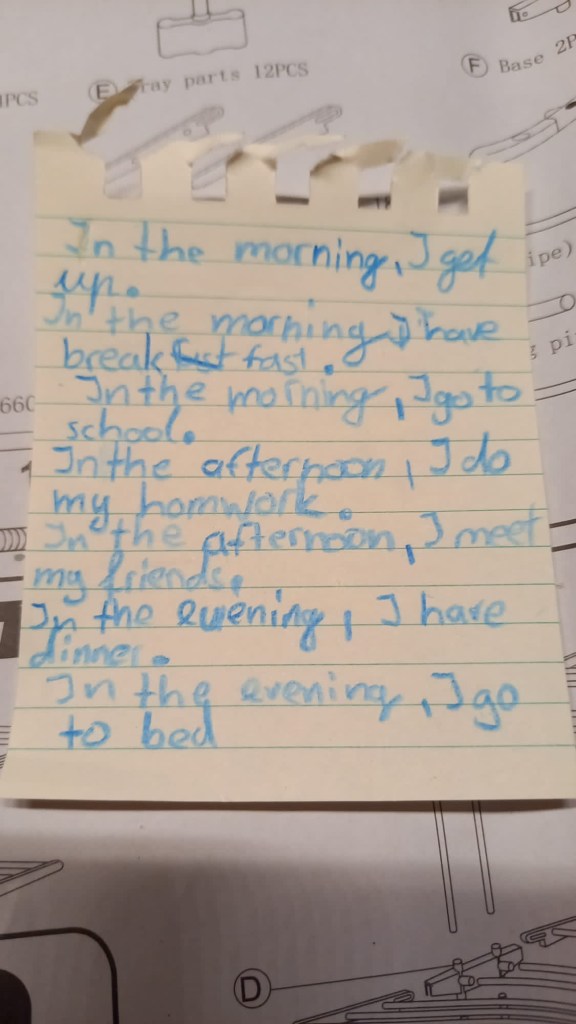 1PCS
E Tray parts 12PCS
F Base 2P
In the morning, I get
up.
In the morning I have
breakfast fast.
In the morning, I go to
school.
In the afternoon, I do
my homwork.
In the afternoon, I meet
my friends.
In the evening, I have
dinner.
In the evening, I go
to bed
ipe)
g pi
660
D